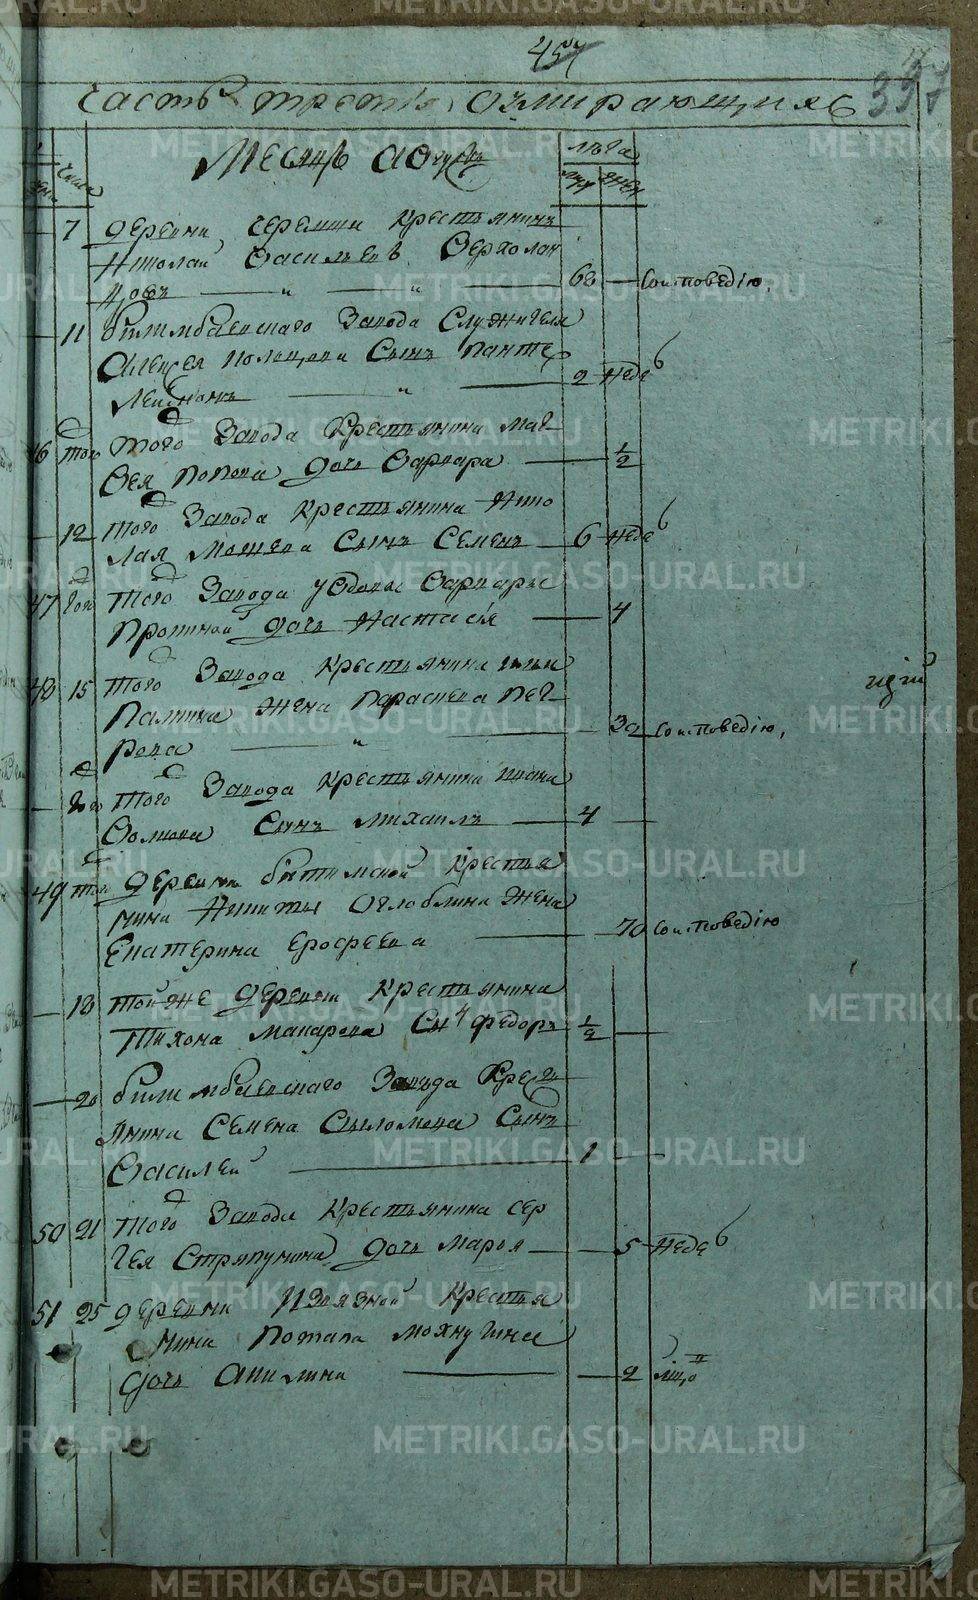 457
397
часть третья, оумирающихъ
месяцъ августъ
лѣта
числа
муж жен
7 деревни черемши крестьянинъ
Николай Васильевъ Верхолан
цовъ — " — " — 68 — Съ исповедiю,
— 11 билимбаевскаго Завода Служителя
Алексея Сынъ Панте
леимонъ — " — 2 неде
46 того того Завода Крестьянина Мат
вея Попова дочь Варвара — 1/2
— 12 того Завода Крестьянина Нико
лая Мошева Сынъ Семенъ — 6 неде
47 того того Завода удовы Варвары
дочь Настасья — 4
48 15 того Завода Крестьянина
жена Параскева Пет
рова — " — 32 Съ исповедiю,
— того того Завода Крестьянина
Сынъ михаилъ — 4 —
49 того деревни битимской Крестья
нина Никиты Оглоблина жена
Екатерина Ерофеева — 70 Съ исповедiю
— 18 той же деревни Крестьянина
Тихона макарова Сынъ федоръ 1/2 —
— 20 билимбаевскаго Завода Крестья
янина Семена Сынъ
Василей — 1 —
50 21 того Завода Крестьянина Сер
гея Стряпунина дочь марья — 5 неде
51 25 деревни Извязной Крестья
нина Потапа мохнутина
дочь Акилина — 2
щiй